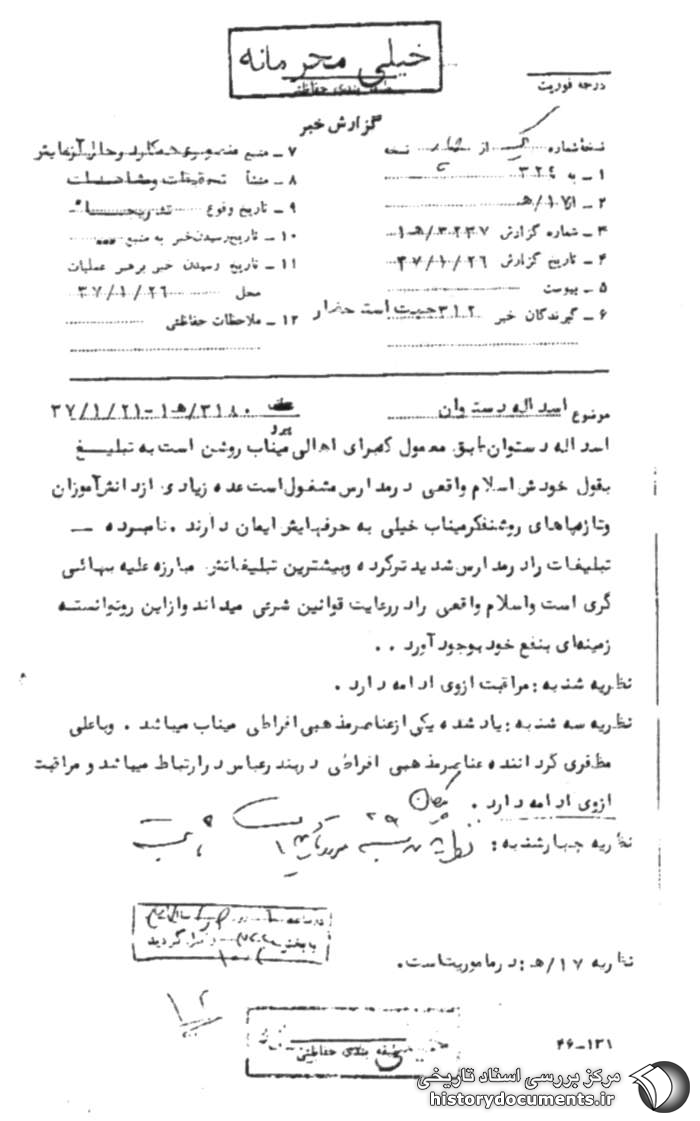 خیلی محرمانه
طبقه بندی حفاظتی
درجه فوریت
گزارش خبر
نسخهٔ شماره یک از چهار نسخه
۱ ـ به ۳۲۴
۲ ـ از ۱۷/ﻫ
۳ ـ شماره گزارش ۳۲۳۷/ﻫ۱
۴ ـ تاریخ گزارش ۳۷/۱/۲۶
۵ ـ پیوست
۶ ـ گیرندگان خبر ۳۱۲ جهت استحضار
۷ ـ منبع منصوری همکار و حال آزمایش
۸ ـ منشأ تحقیقات و مشاهدات
۹ ـ تاریخ وقوع
۱۰ ـ تاریخ رسیدن خبر به منبع
۱۱ ـ تاریخ رسیدن خبر برهبر عملیات
محل ۳۷/۱/۲۶
۱۲ ـ ملاحظات حفاظتی
موضوع اسداله دستوان
عطف
پیرو
۳۱۸۰/ﻫ۱-۳۷/۱/۲۱
اسداله دستوان طبق معمول که برای اهالی میناب روشن است به تبلیغ
بقول خودش اسلام واقعی در مدارس مشغول است عده زیادی از دانش‌آموزان
و تازه‌پاهای روشنفکر میناب خیلی به حرفهایش ایمان دارند . نامبرده ـ
تبلیغات را در مدارس شدیدتر کرده و بیشترین تبلیغاتش مبارزه علیه بهائی
گری است و اسلام واقعی را در رعایت قوانین شرعی میداند و از این رو توانسته
زمینه‌ای بنفع خود بوجود آورد . .
نظریه شنبه : مراقبت از وی ادامه دارد .
نظریه سه شنبه : یاد شده یکی از عناصر مذهبی افراطی میناب میباشد . و با علی
مظفری گرداننده عناصر مذهبی افراطی در بندرعباس در ارتباط میباشد و مراقبت
از وی ادامه دارد .
نظریه چهارشنبه : نظریه سه شنبه مورد تایید است
نظریه ۱۷/ﻫ : در ماموریت است .
طبقه بندی حفاظتی
۴۶-۱۳۱
مرکز بررسی اسناد تاریخی
historydocuments.ir